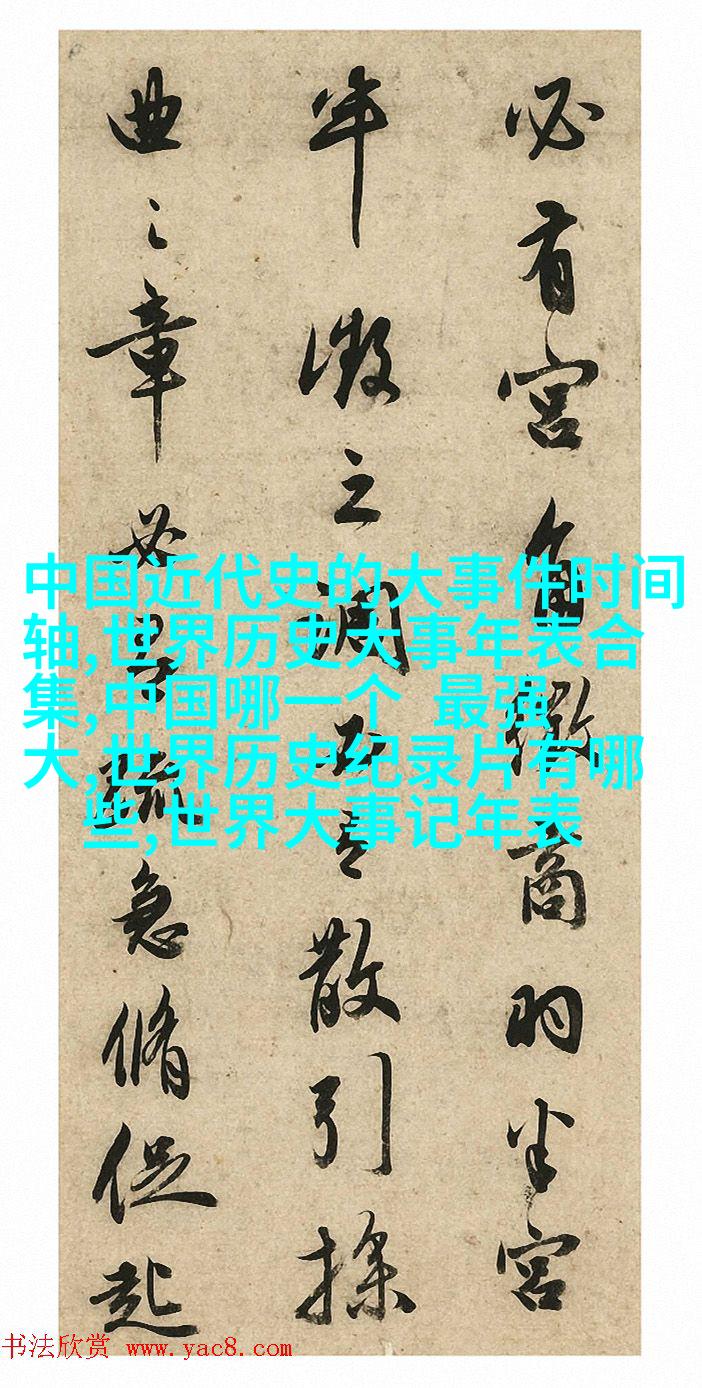 必有宫角徵商羽半宫
半徵之调五音散引操
曲之章疏急脩促起
中国近代史的大事件时间
轴,世界历史大事年表合
集,中国哪一个 最强
大,世界历史纪录片有哪
些,世界大事记年表
书法欣赏 www.yac8.com